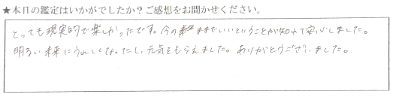 ★本日の鑑定はいかがでしたか？ご感想をお聞かせください。
とっても現実的で楽しかったです。今のままでいいということが知れて安心しました。
明るい未来にうれしくなったし、元気をもらえました。ありがとうございました。